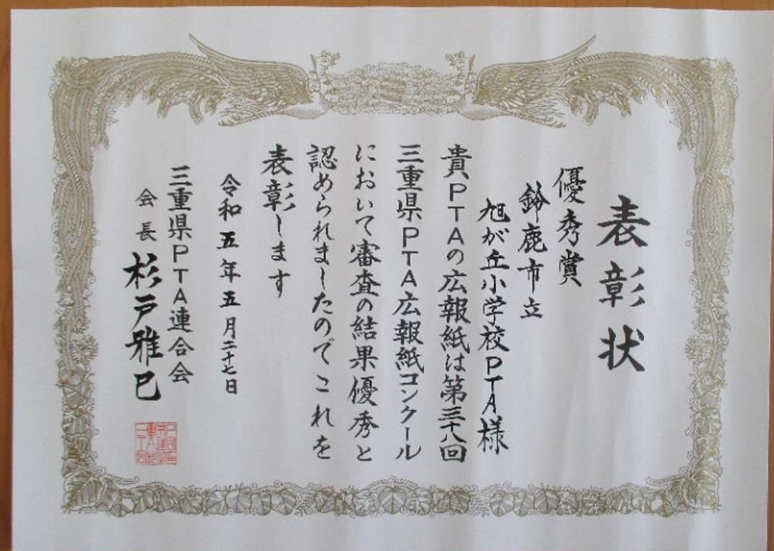 表彰状
優秀賞
鈴鹿市立
旭が丘小学校PTA様
貴PTAの広報紙は第三十八回
三重県PTA広報紙コンクール
において審査の結果優秀と
認められましたのでこれを
表彰します
令和五年五月二十七日
三重県PTA連合会
会長 杉戸雅巳